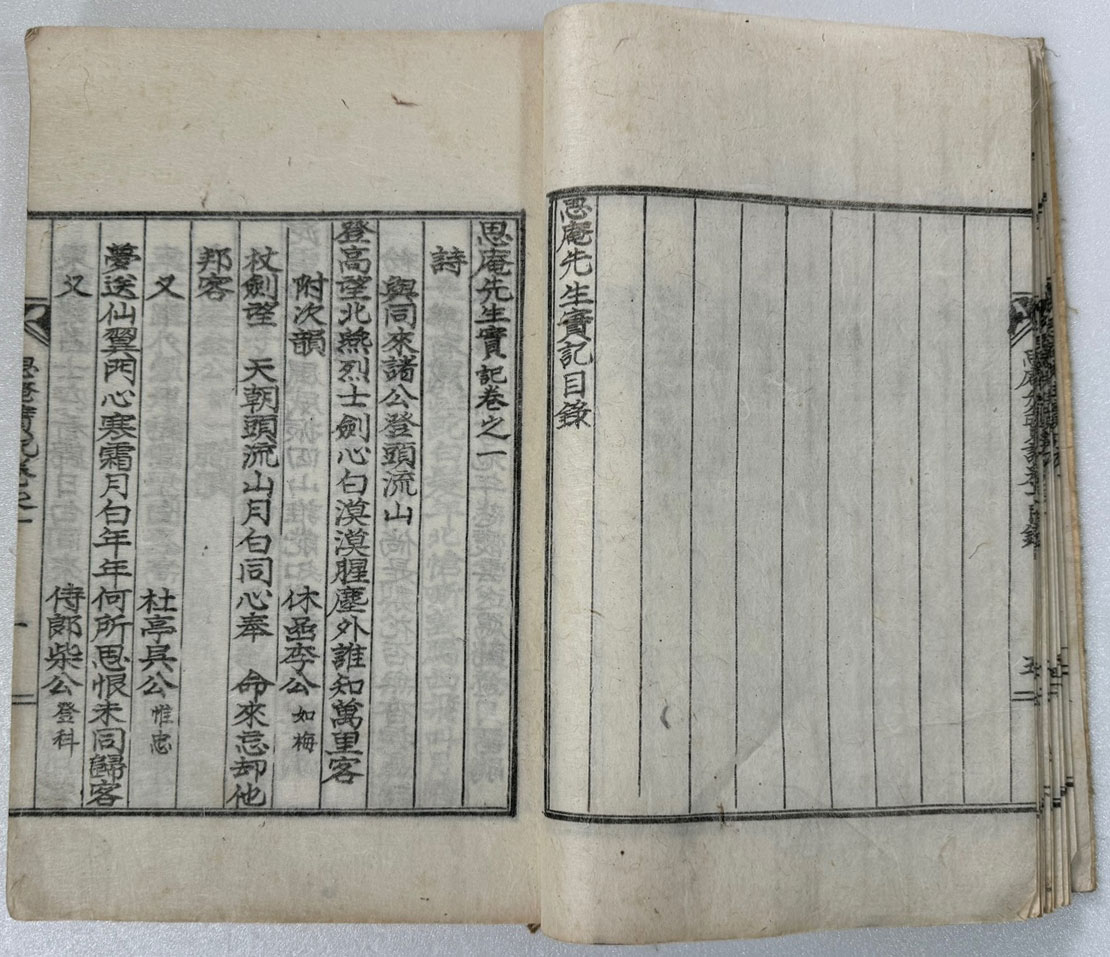 思庵先生實記目錄
思庵先生實記卷之一
詩
與同來諸公登頭流山
登高望北燕烈士劍心白漠漠腥塵外誰知萬里客
附次韻 休菴李公 如梅
杖劍望 天朝頭流山月白同心奉 命來忘却他
邦客
又 杜亭吳公 惟忠
夢送仙翼門心寒霜月白年年何所思恨未同歸客
又 侍郞柴公 登科